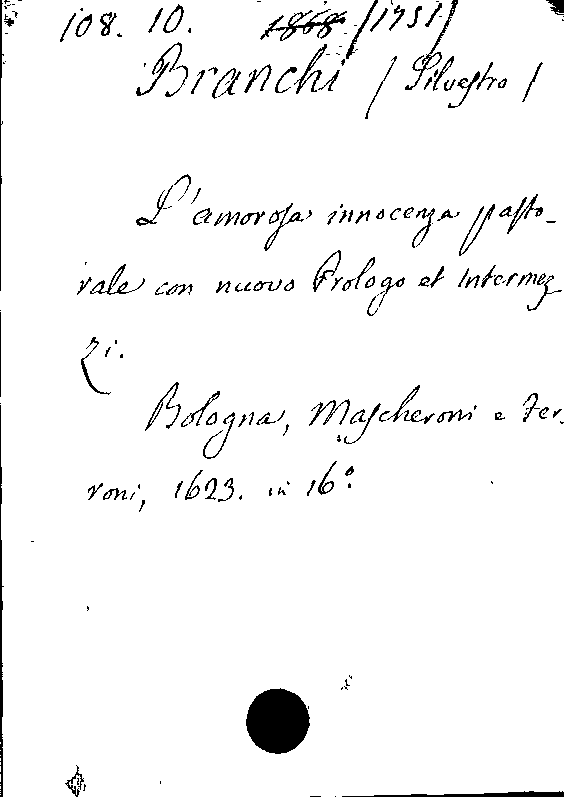 108. 10. 1868 /1751/
Branchi / Silvestro /
L'amorosa innocenza pasto-
rale con nuovo Prologo et Intermez
zi.
Bologna, Mascheroni e Fer-
roni, 1623. in 16º